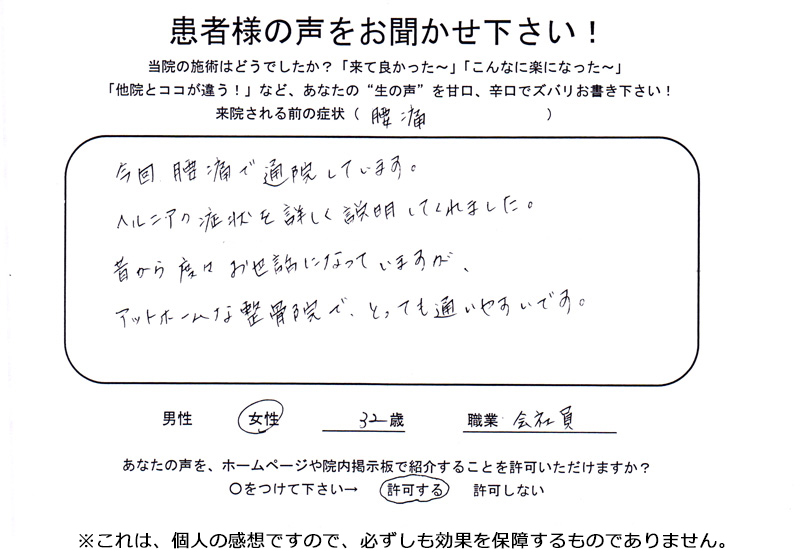 患者様の声をお聞かせ下さい！
当院の施術はどうでしたか？「来て良かった～」「こんなに楽になった～」
「他院とココが違う！」など、あなたの“生の声”を甘口、辛口でズバリお書き下さい！
来院される前の症状（ 腰痛 ）
今回 腰痛で通院しています。
ヘルニアの症状を詳しく説明してくれました。
昔から度々お世話になっていますが、
アットホームな整骨院で、とっても通いやすいです。
男性 女性 32歳 職業 会社員
あなたの声を、ホームページや院内掲示板で紹介することを許可いただけますか？
〇をつけて下さい→ 許可する 許可しない
※これは、個人の感想ですので、必ずしも効果を保障するものでありません。